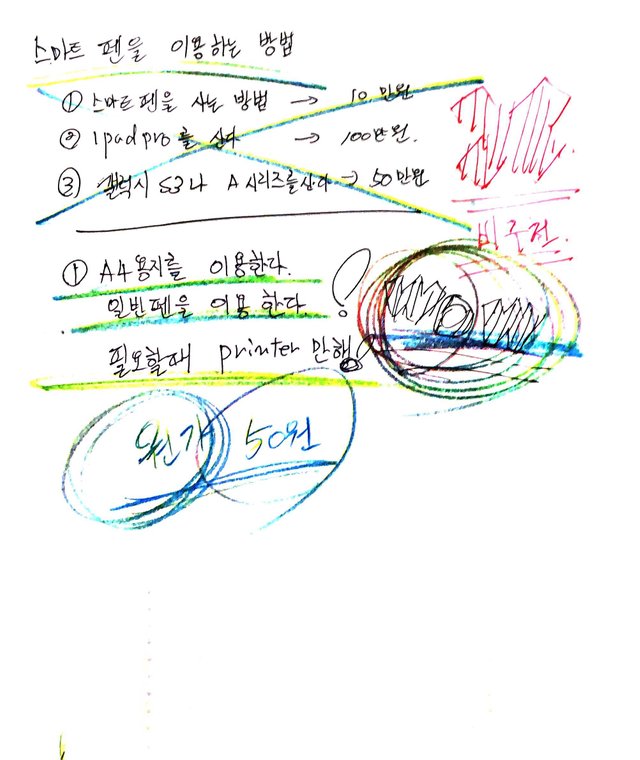 스마트 펜을 이용하는 방법
① 스마트펜을 사는 방법 → 10만원
② ipad pro를 산다 → 100만원.
③ 갤럭시 S3나 A시리즈를 산다 → 50만원
① A4용지를 이용한다.
일반펜을 이용한다!
필요할때 printer 만해!
원가 50원